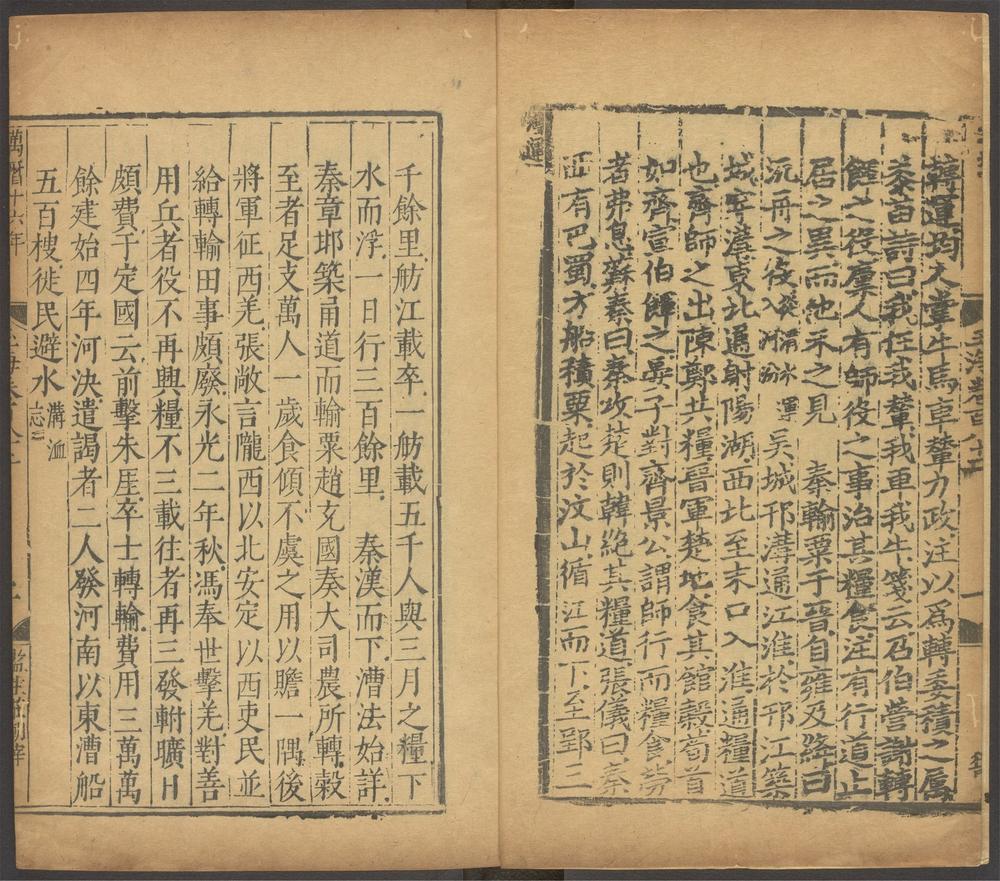 轉運均人掌牛馬車輦力政注以爲轉委積之屬
黍苗詩曰我任我輦我車我牛箋云召伯營謝轉
餫之役廩人有師役之事治其糧食注有行道止
居之異而他不之見　秦輸粟于晉自雍及絳曰
汎舟之役從渭水運入河汾　吳城邗溝通江淮於邗江築
城穿溝東北通射陽湖西北至末口入淮通糧道
也齊師之出陳鄭共糧晉軍楚地食其館穀荀首
如齊宣伯餫之晏子對齊景公謂師行而糧食勞
者弗息蘇秦曰秦攻楚則韓絶其糧道張儀曰秦
西有巴蜀方船積粟起於汶山循江而下至郢三
千餘里舫江載卒一舫載五千人與三月之糧下
水而浮一日行三百餘里　秦漢而下漕法始詳
秦章邯築甬道而輸粟趙充國奏大司農所轉穀
至者足支萬人一歲食傾不虞之用以贍一隅後
將軍征西羌張敞言隴西以北安定以西吏民並
給轉輸田事頗廢永光二年秋馮奉世擊羌對善
用兵者役不再興糧不三載往者再三發軵曠日
頗費于定國云前擊朱厓卒士轉輸費用三萬萬
餘建始四年河決遣謁者二人發河南以東漕船
五百㮴徙民避水溝洫志
萬曆十六年